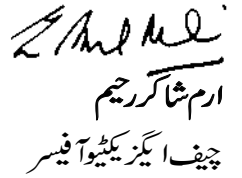 ارم شاکر رحیم
چیف ایگزیکٹیو آفیسر